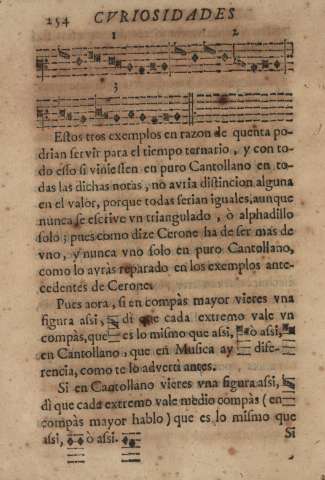 254 CVRIOSIDADES
1 2
3
Estos tros exemplos en razon de quenta po-
drian servir para el tiempo ternario, y con to-
do esso si viniessen en puro Cantollano en to-
das las dichas notas, no avria distincion alguna
en el valor, porque todas serian iguales, aunque
nunca se escrive vn triangulado, ò alphadillo
solo; pues como dize Cerone ha de ser más de
vno, y nunca vno solo en puro Cantollano,
como lo avràs reparado en los exemplos ante-
cedentes de Cerone.
Pues aora, si en compàs mayor vieres vna
figura assi, di que cada extremo vale vn
compàs, que es lo mismo que assi, ò assi,
en Cantollano, que en Musica ay dife-
rencia, como te lo advertì antes.
Si en Cantollano vieres vna figura assi,
dì que cada extremo vale medio compàs (en
compàs mayor hablo) que es lo mismo que
assi, ò assi.
Si